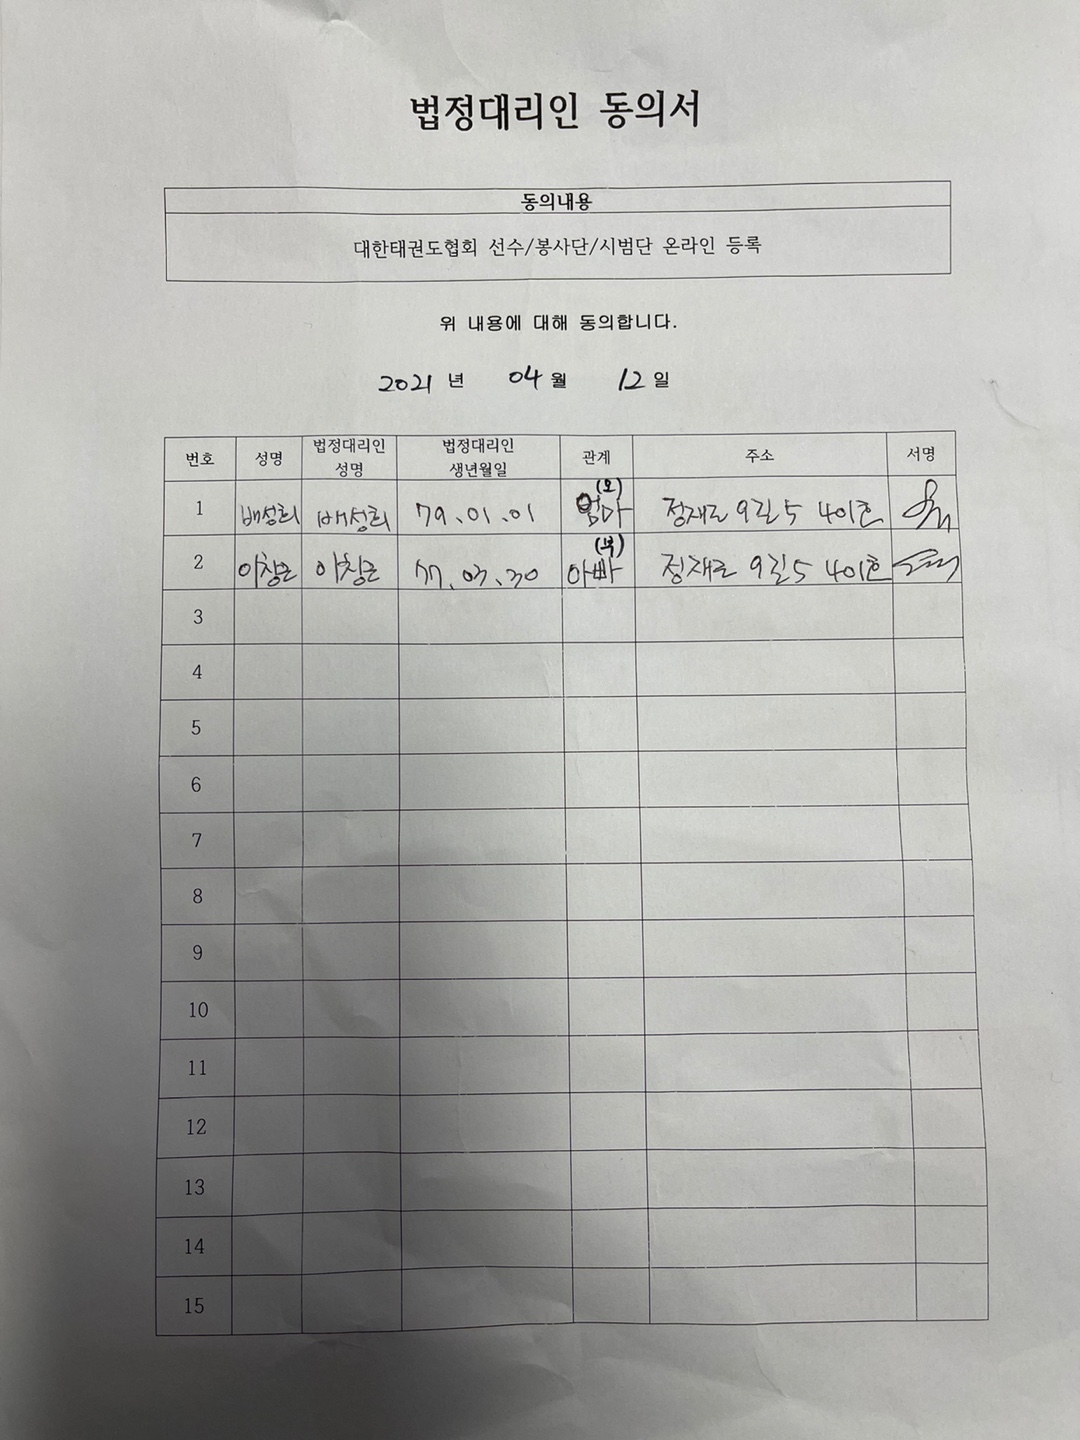 법정대리인 동의서
동의내용
대한태권도협회 선수/봉사단/시범단 온라인 등록
위 내용에 대해 동의합니다.
2021 년 04 월 12 일
번호 성명 법정대리인 성명 법정대리인 생년월일 관계 주소 서명
1 배성희 배성희 79.01.01 엄마 (모) 정재로 9길 5 401호
2 이창근 이창근 77.03.30 아빠 (부) 정재로 9길 5 401호
3
4
5
6
7
8
9
10
11
12
13
14
15